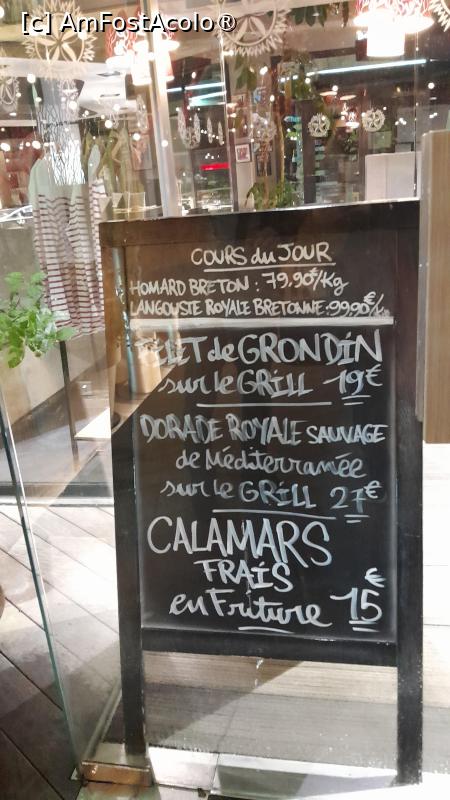 [c] AmFostAcolo®
COURS du JOUR
HOMARD BRETON : 79,90€/Kg
LANGOUSTE ROYALE BRETONNE : 99,90€/
FILET de GRONDIN
sur le GRILL 19€
DORADE ROYALE SAUVAGE
de Méditerranée
sur le GRILL 27€
CALAMARS
FRAIS
en Friture 15€